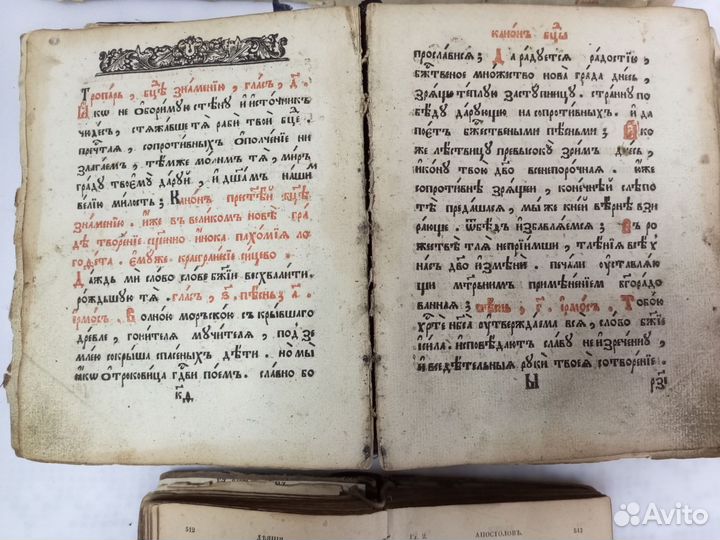 Тропарь, бц҃ѣ зна́менїю, гла́съ, д҃.
Я́кѡ не ѡ҆бори́мую стѣ́ну и҆ и҆сто́чникъ
чюде́съ, стяжа́вше тѧ̀ раби̑ твоѝ бц҃е
пречⷭ҇таѧ, сопроти́вныхъ ѡ҆полче́нїе ни
злага́емъ, тѣ́мже мо́лимъ тѧ̀, ми́ръ
гра́ду твоемꙋ̀ да́руй, и҆ дш҃а́мъ на́ши
ве́лїю ми́лость. Кано́нъ прест҃ѣ́й бц҃ѣ
зна́менїю. и҆́же въ вели́комъ но́вѣ гра
дѣ̀ творе́нїе сщ҃е́нно и҆́нока пахо́мїѧ ло
гоѳе́та. є҆мꙋ́же, краегране́сїе си́цево
Да́ждь мѝ сло́во сло́ве бж҃їй восхвали́ти
ро́ждьшую тѧ̀. гла́съ, д҃. пѣ́снь, а҃.
і҆рмо́съ. Волно́ю морско́ю скры́вшаго
дре́вле, гони́телѧ мучи́телѧ, под зе
мле́ю сокры́ша спасе́ныхъ дѣ́ти. но мы̀
ꙗ҆́кѡ ѻ҆трокови́ца гдⷭ҇ви пои́мъ. сла́вно бо
к҃д
Кано́нъ бц҃ы
просла́висѧ. Да ра́дуется ра́достїю,
бжⷭ҇твеное мно́жество но́ва гра́да дне́сь,
зря́ще те́плую засту́пницу. стра́нну по
бѣ́ду да́рующю на сопроти́вныхъ. и҆ да
пое́тъ бжⷭ҇твеными пѣ́сньми. Я́ко
же лѣ́ствицу превысо́ку зри́мъ дне́сь,
и҆ко́ну твою̀ дв҃о всенепоро́чная. ю҆́же
сопроти́внїи зря́щеи, коне́чнѣй слѣпо
тѣ̀ преда́шася, мы́ же к не́й вѣ́рнѣ взи
ра́юще, ѿ бѣ́дъ и҆збавля́емся. Въ ро
жествѣ̀ тля̀ неприи́мши, тлѣ́нїя всѣ́х
на́съ дв҃о и҆змѣнѝ. печа́ли ѹ҆ставля́ю
щи мт҃рьнимъ примѣне́нїемъ бг҃ора́до
ва́нная. пѣ́снь, г҃. і҆рмо́съ. Тобо́ю
хрⷭ҇те нб҃са̀ ѹ҆тверже́на вся̀, сло́во бж҃їе
и҆ си́ла. и҆сповѣ́дают сла́ву неизрече́нну,
и҆ вседѣ́тельныя ру́ки твоея̀ сотворе́нїе.
542
ДѢЯНІЯ
Гл. 2.
АПОСТОЛОВЪ.
543
Avito